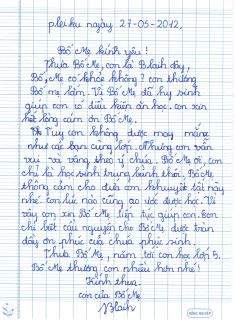 pleiku ngày 27-05-2012,
Bố Mẹ kính yêu !
Thưa Bố Mẹ, con là Blaih đây,
Bố, Mẹ có khỏe không ? con thương
Bố mẹ lắm. Vì Bố Mẹ đã hy sinh
giúp con có điều kiện ăn học. con xin
hết lòng cám ơn Bố Mẹ.
Tuy con không được may mắng
như các bạn cùng lớp. Nhưng con vẫn
vui và vâng theo ý chúa. Bố Mẹ ơi, con
chỉ là học sinh trung bình thôi. Bố Mẹ
thông cảm cho đứa con khuyết tật này
nhé. con lúc nào cũng ao ước được học. Vì
vậy con xin Bố Mẹ tiếp tục giúp con. Con
chỉ biết cầu nguyện cho Bố Mẹ được tràn
đầy ơn phúc của chúa phục sinh.
Thưa Bố Mẹ, năm tới con học lớp 5.
Bố Mẹ thương con nhiều hơn nhé!
Kính thưa
con của Bố Mẹ
Blaih